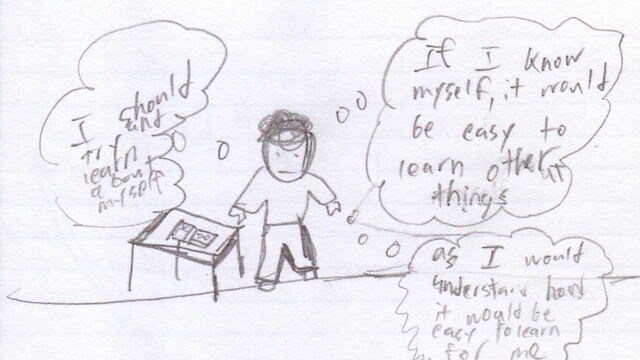 I should
and
try
learn
about
myself
If I know
myself, it would
be easy to
learn other
things
as I would
understand how
it would be
easy to learn
for me